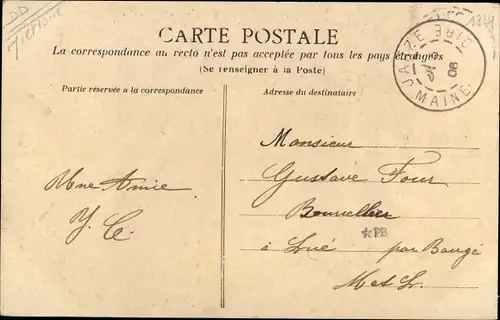 DD
CARTE POSTALE
La correspondance au recto n'est pas acceptée par tous les pays étrangers
(Se renseigner à la Poste)
Partie réservée a la correspondance
Adresse du destinataire
JARZÉ
08
MAINE
Monsieur
Gustave Four
Bourrellier
à Lué par Baugé
M et L.
*PB
Une Amie
Y. C.